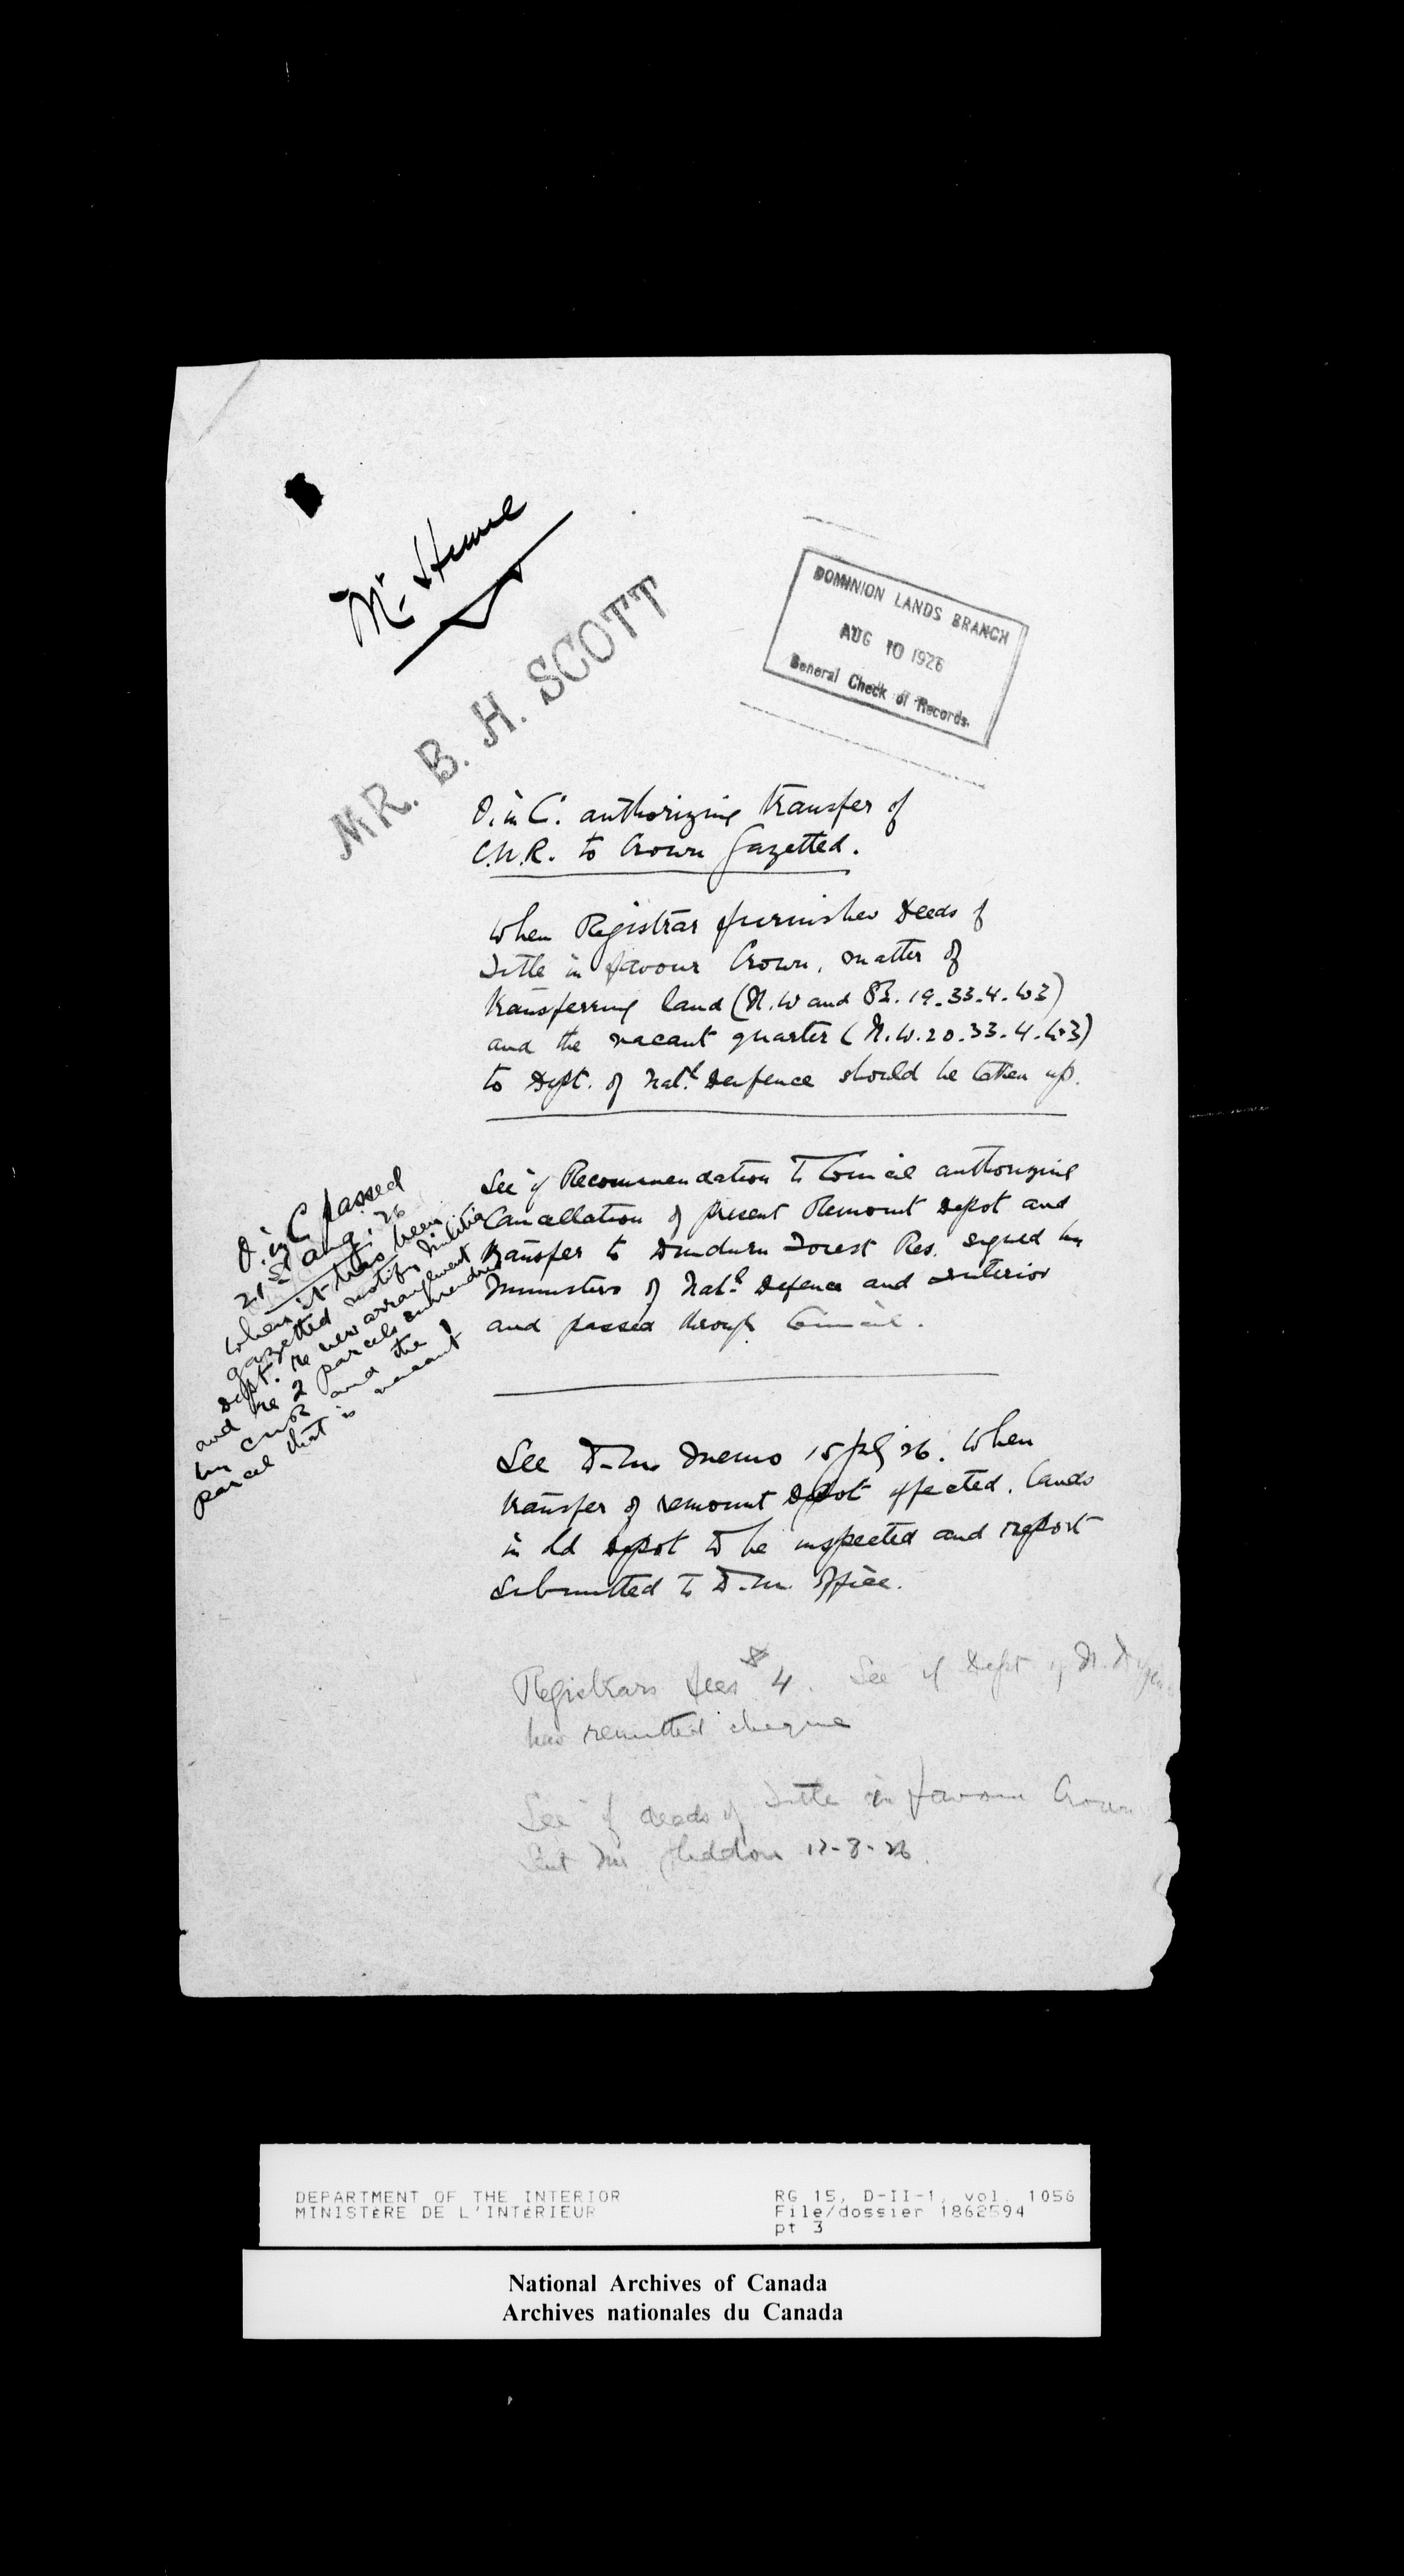 Mr. Hume
MR. B. H. SCOTT
DOMINION LANDS BRANCH
AUG 10 1926
General Check of Records.
O. in C. authorizing transfer of
C.N.R. to Crown Gazetted.
When Registrar furnishes Deeds of
Title in favour Crown, matter of
transferring land (N.W and S½. 19.33.4.W3)
and the vacant quarter (N.W.20.33.4.W3)
to Dept. of Natl. Defence should be taken up.
See if Recommendation to Council authorizing
Cancellation of present Remount Depot and
transfer to Dundurn Forest Res. signed by
Ministers of Natl. Defence and Interior
and passed through Council.
O. in C. passed
21st Aug. 26
When it has been
gazetted notify Militia
Dept. re new arrangement
and re 2 parcels surrendered
by CNR and the
parcel that is vacant
See D.M. Memo 15 July 26. When
transfer of remount Depot effected. lands
in old Depot to be inspected and report
submitted to D.M. Office.
Registrars fees $4. See if Dept of N.
has remitted cheque
See if deeds of Title in favour Crown
Sent Mr 17-8-26.
DEPARTMENT OF THE INTERIOR
MINISTÈRE DE L'INTÉRIEUR
RG 15, D-II-1, vol. 1056
File/dossier 1862594
pt 3
National Archives of Canada
Archives nationales du Canada